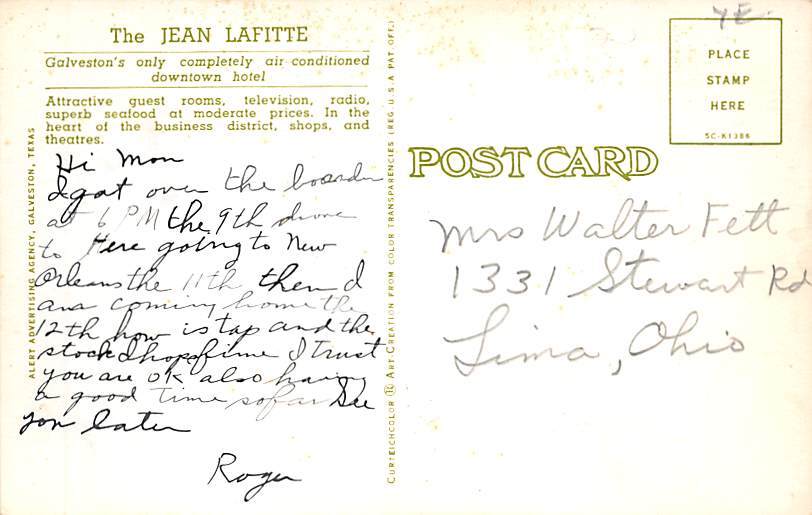 The JEAN LAFITTE
Galveston's only completely air conditioned
downtown hotel
Attractive guest rooms, television, radio,
superb seafood at moderate prices. In the
heart of the business district, shops, and
theatres.
Hi Mom
I got over the boarder
at 6 PM the 9th drove
to Here going to New
Orleans the 11th then I
am coming home the
12th how is tap and the
stock I hope fine I trust
you are ok also having
a good time so far See
you later
Roger
ALERT ADVERTISING AGENCY, GALVESTON, TEXAS
CURTEICHCOLOR ART CREATION FROM COLOR TRANSPARENCIES (REG. U.S.A PAT. OFF.)
YE
PLACE
STAMP
HERE
5C-K1386
POST CARD
Mrs Walter Fett
1331 Stewart Rd
Lima, Ohio